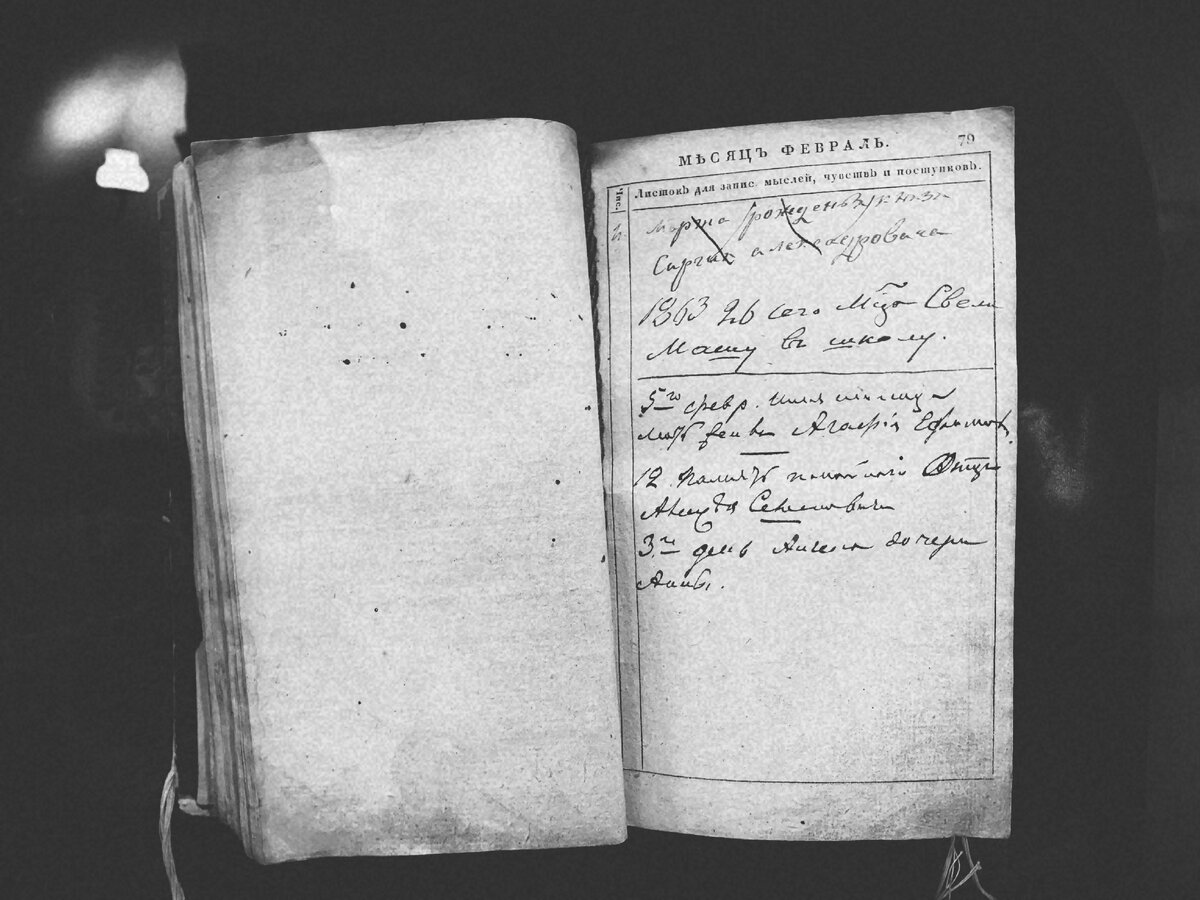 МѢСЯЦЪ ФЕВРАЛЬ.
79
Чис.
Листокъ для запис. мыслей, чувствъ и поступковъ.
2.
Марта рожденья князя
Сергия Александровича
1863 26 сего Мца Свели
Машу въ школу.
5го февр. имянинница
Агафія Ефимов.
12. Память покойнаго Отца
Семеновича
3го день Ангела дочери
Анны.